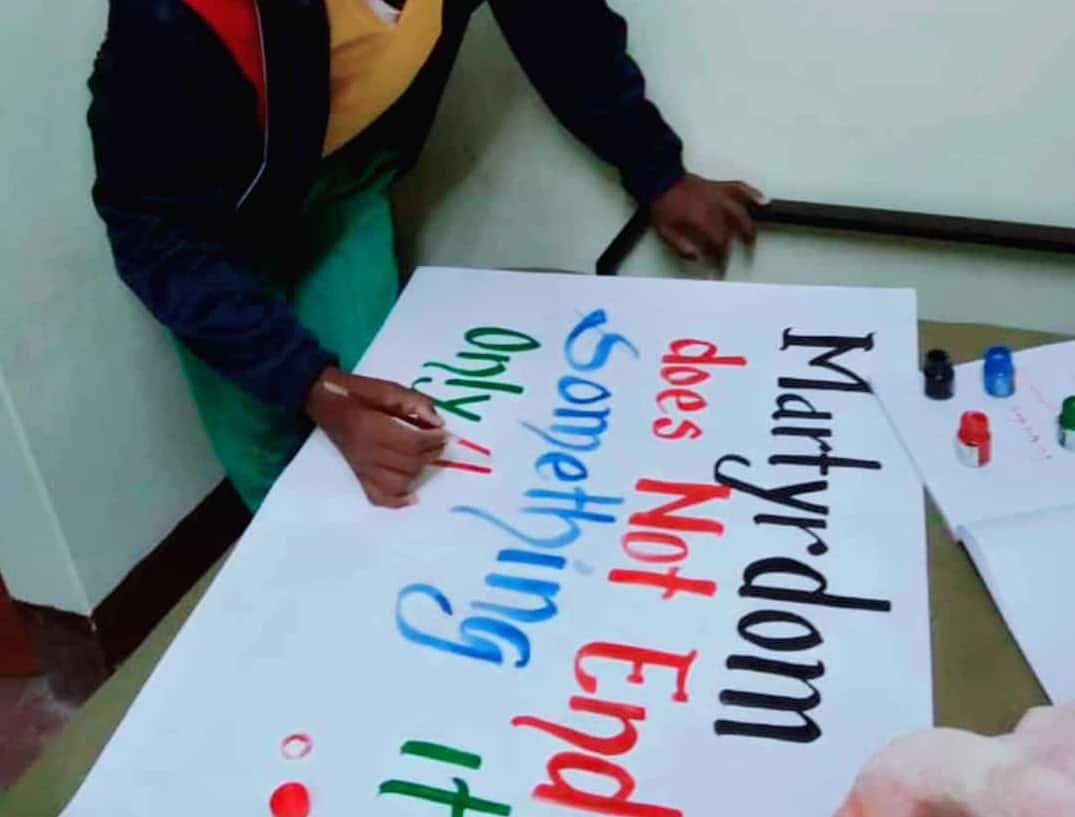 Martyrdom
does Not End
Something It
only